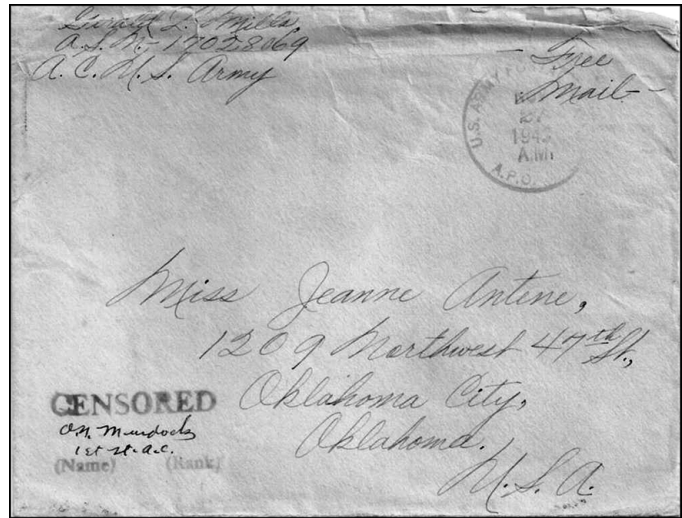 Gerald L. Mills.
A.S.N.- 17028069
A.C. U.S. Army
- Free
Mail -
U.S. ARMY
1943
A.M.
A.P.O.
Miss Jeanne Antene,
1209 Northwest 47th St.,
Oklahoma City,
Oklahoma.
U.S.A.
CENSORED
Murdock
1st Lt. A.C.
(Name) (Rank)